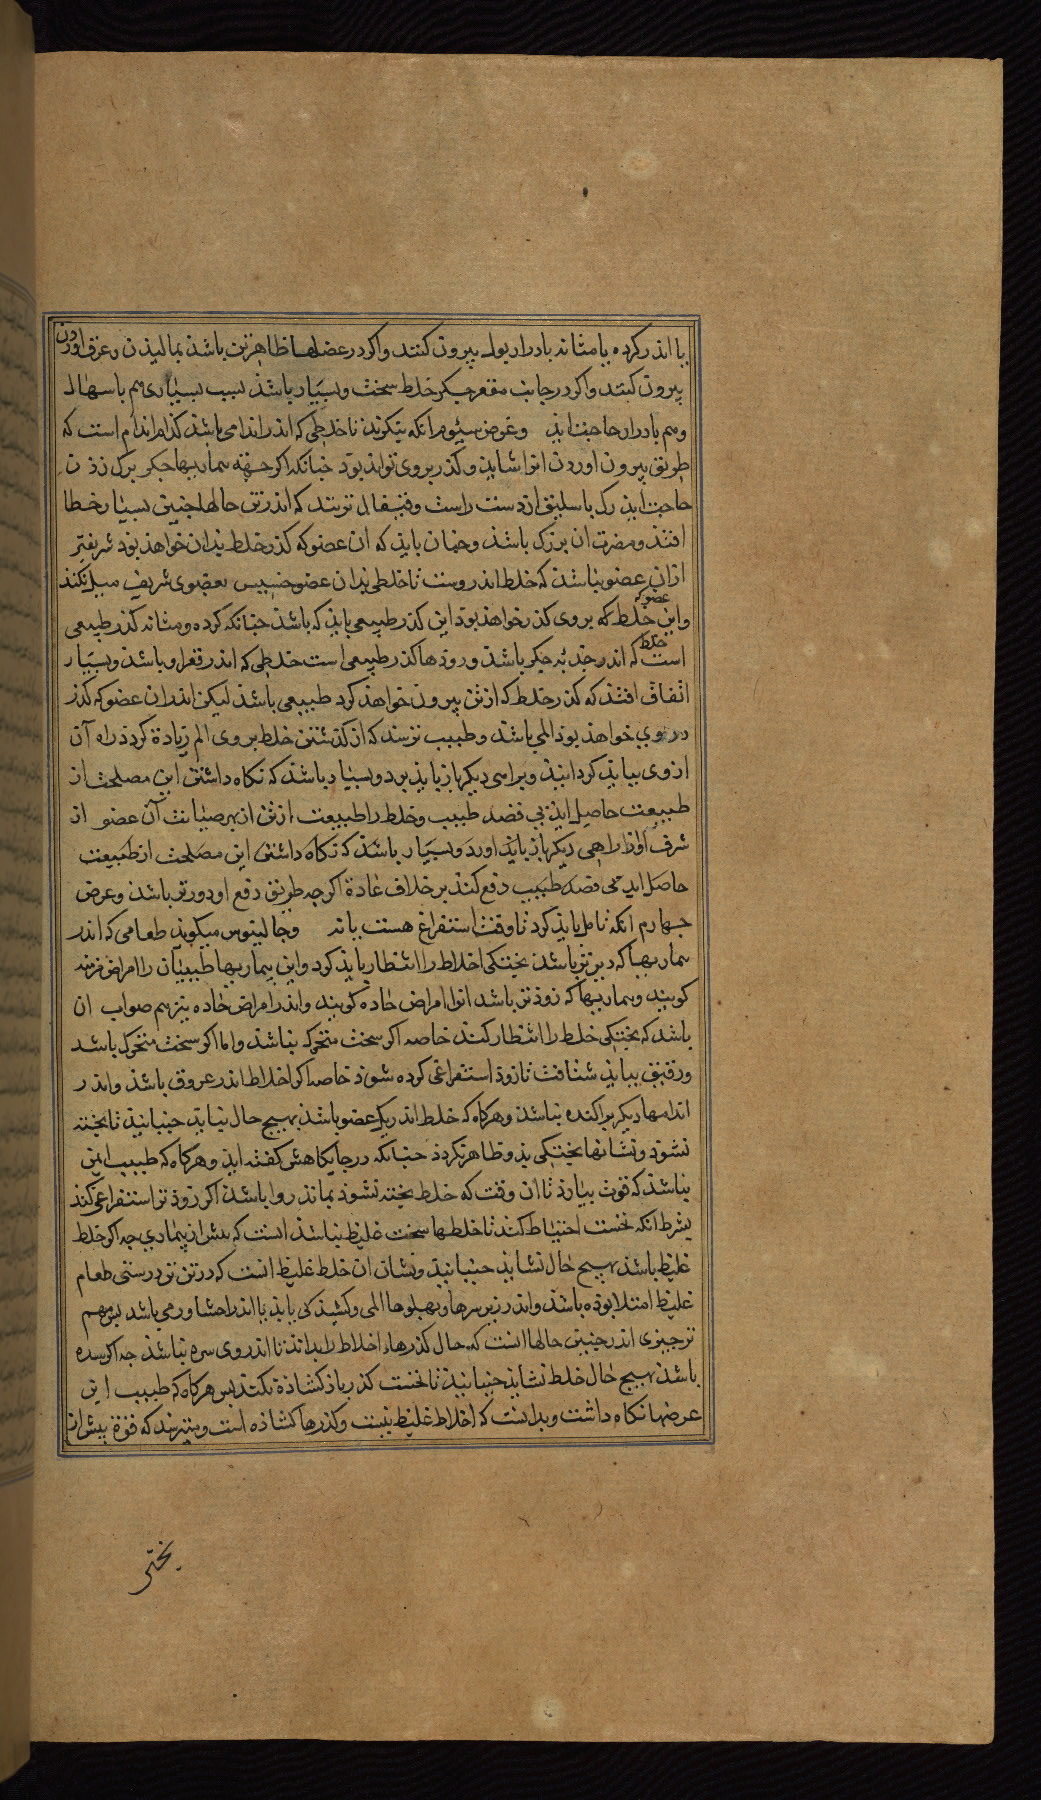 یا اندر کرده یا مثانه بادرار بول بیرون کنند واکر در عضلها ظاهر تن باشذ بمالیذن وعرق اوردن
بیرون کنند واکر در جانب مقعر جکر خلط سخت وبسیار باشذ بسبب بسیاری هم باسهال
وهم بادرار حاجت ایذ وغرض سیوم انکه بنکرند تا خلطی که اندر اندامی باشذ کدام اندام است که
طریق بیرون اوردن انرا شایذ وکذر بروی تواند بوذ جنانکه اکر جهة بیماریها جکر برک زذن
حاجت ایذ رک باسلیق از دست راست وقیفال نزنند که اندرین حالها جنین بسیار خطا
افتذ ومضرت ان بزرک باشذ وجنان بایذ که ان عضو که کذر خلط بذان خواهذ بوذ شریفتر
ازان عضو نباشذ که خلط اندروست تا خلطی بذان عضو خسیس بعضوی شریف میل نکند
واین عضوکه خلط که بروی کذر خواهذ بوذ این کذر طبیعی بایذ که باشذ جنانکه کرده ومثانه کذر طبیعی
است خلط که اندر حدبه جکر باشذ وروذها کذر طبیعی است خلطی که اندر قعر او باشذ وبسیار
اتفاق افتذ که کذر خلط که از تن بیرون خواهذ کرد طبیعی باشذ لیکن اندران عضو که کذر
بروی خواهذ بوذ المی باشذ وطبیب ترسد که از کذشتن خلط بروی الم زیادة کردذ راه آن
ازوی بیایذ کردانیذ وبراهی دیکر باز بایذ برد وبسیار باشذ که نکاه داشتن این مصلحت از
طبیعت حاصل ایذ بی قصد طبیب وخلط را طبیعت از تن از بهر صیانت آن عضو از
شرف او از راهی دیکر باز بایذ اورد وبسیار باشذ که نکاه داشتن این مصلحت از طبیعت
حاصل ایذ بی قصد طبیب دفع کند بر خلاف عادة اکرجه طریق دفع او دورتر باشذ وغرض
جهارم انکه تامل بایذ کرد تا وقت استفراغ هست یا نه وجالینوس میکویذ طعامی که اندر
بیماریها که دیرتر باشذ بختکی اخلاط را انتظار بایذ کرد واین بیماریها طبیبان را امراض مزمنه
کویند وبیماریها که زوذتر باشد انرا امراض حاده کویند واندر امراض حاده نیز هم صواب ان
باشد که بختکی خلط را انتظار کنند خاصه اکر سخت متحرک نباشذ واما اکر سخت متحرک باشد
ورقیق بیایذ شتافت تا زوذ استفراغی کرده شوذ خاصه اکر اخلاط اندر عروق باشذ واندر
اندامها دیکر براکنده نباشذ وهرکاه که خلط اندر یک عضو باشذ بهیج حال نبایذ جنبانیذ تا بخته
نشوذ ونشانها بختکی بذو ظاهر نکردذ جنانکه در جایکاهش کفته ایذ وهرکاه که طبیب ایمن
نباشذ که قوت بیارذ تا ان وقت که خلط بخته شوذ بماند روا باشذ اکر زوذتر استفراغی کند
بشرط انکه نخست احتیاط کند تا خلطها سخت غلیظ نباشذ انست که بیش از بیماری جه اکر خلط
غلیظ باشذ بهیج حال نشایذ جنبانیذ ونشان ان خلط غلیظ انست که در تن تندرستی طعام
غلیظ امتلا بوذه باشذ واندر زیر سرها وبهلوها المی وکشیذکی یابذ یا اندر احشا ورمی باشد بس مهم
ترجیزی اندر جنین حالها انست که حال کذرهاء اخلاط را بداند تا اندر وی سده نباشذ جه اکر سده
باشذ بهیج حال خلط نشایذ جنبانیذ تا نخست کذر باز کشاذه نکند بس هرکاه که طبیب این
عرضها نکاه داشت وبدانست که اخلاط غلیظ نیست وکذرها کشاذه است ومیترسد که قوة بیش از
بختن